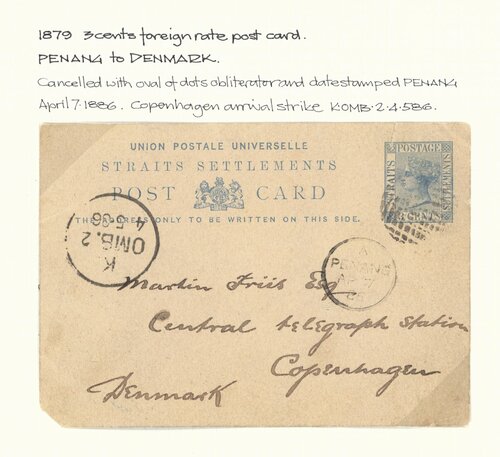 1879 3cents foreign rate post card.
PENANG to DENMARK.
Cancelled with oval of dots obliterator and datestamped PENANG
April 7.1886. Copenhagen arrival strike K.OMB.2.4.586.
UNION POSTALE UNIVERSELLE
STRAITS SETTLEMENTS
POST CARD
THE ADDRESS ONLY TO BE WRITTEN ON THIS SIDE.
STRAITS
POSTAGE
SETTLEMENTS
3 CENTS
K
OMB. 2
4 5 86
PENANG
AP 7
Martin Friis Esq
Central telegraph Station
Copenhagen
Denmark